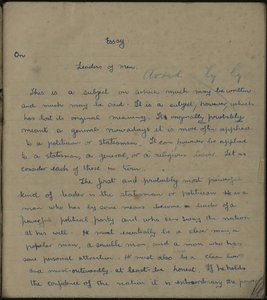 Essay
On
Leaders of men.
This is a subject on which much may be written
and much may be said. It is a subject, however, which
has lost its original meaning. It originally probably
meant a general nowadays it is more often applied
to a politician or Statesman. It can however be applied
to a statesman, a general, or a religious leader. Let us
consider each of these in turn.
The first and probably most powerful
kind of leader is the statesman or politician. He is a
man who has by some means become a leader of a
powerful political party and who can sway the nation
at his will. He must essentially be a clever man, a
popular man, a sensible man, and a man who has
some personal attraction. He must also be a clear
and must outwardly at least be honest. If he holds
the confidence of the nation it is extraordinary the